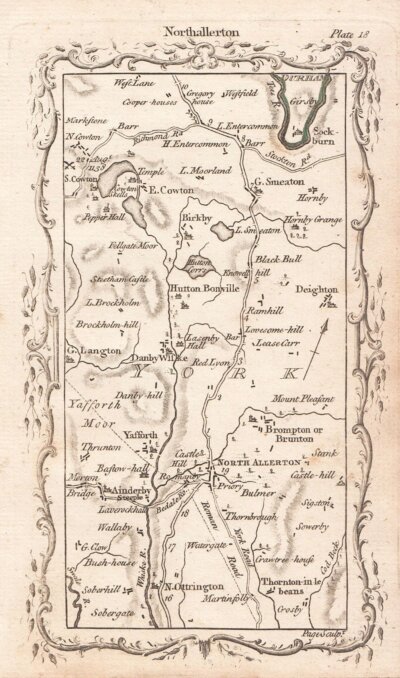 Northallerton
Plate 18
West Lane
DURHAM
Cooper-houses
Gregory house
Westfield
Girsby
Tees R
Markstone
Barr
Richmond Rd
L. Entercommon
Sock-
burn
N. Cowton
H. Entercommon
Barr
Stockton Rd
Temple
L. Moorland
S. Cowton
Cowton
E. Cowton
G. Smeaton
Hornby
Pepper Hall
Birkby
Hornby Grange
L. Smeaton
Pellgate Moor
Hutton
Black Bull
Knowell hill
Streetham Castle
Hutton Bonville
Deighton
L. Brockholm
Ramhill
Brockholm-hill
Lasenby
Hall
Bar
Lovesome-hill
Lease Carr
G. Langton
Danby Wiske
Red Lyon
YORK
Mount Pleasent
Danby-hill
Yafforth
Moor
Brompton or
Brunton
Yafforth
Thrunton
Castle
Hill
Stank
Bastow-hall
NORTH ALLERTON
Castle-hill
Morton
Bridge
Romanby
Priory
Ainderby
Steeple
Bulmer
Sigston
Bedale Rd
Thornbrough
Roman
Sowerby
Wallaby
G. Clow
Watergate
York Road
Road
Bush-house
Crawtree-house
Wiske R.
Cod Beck
Soberhill
N. Ottrington
Thornton-in le
beans
Martinfolly
Sobergate
Crosby
Page Sculp.